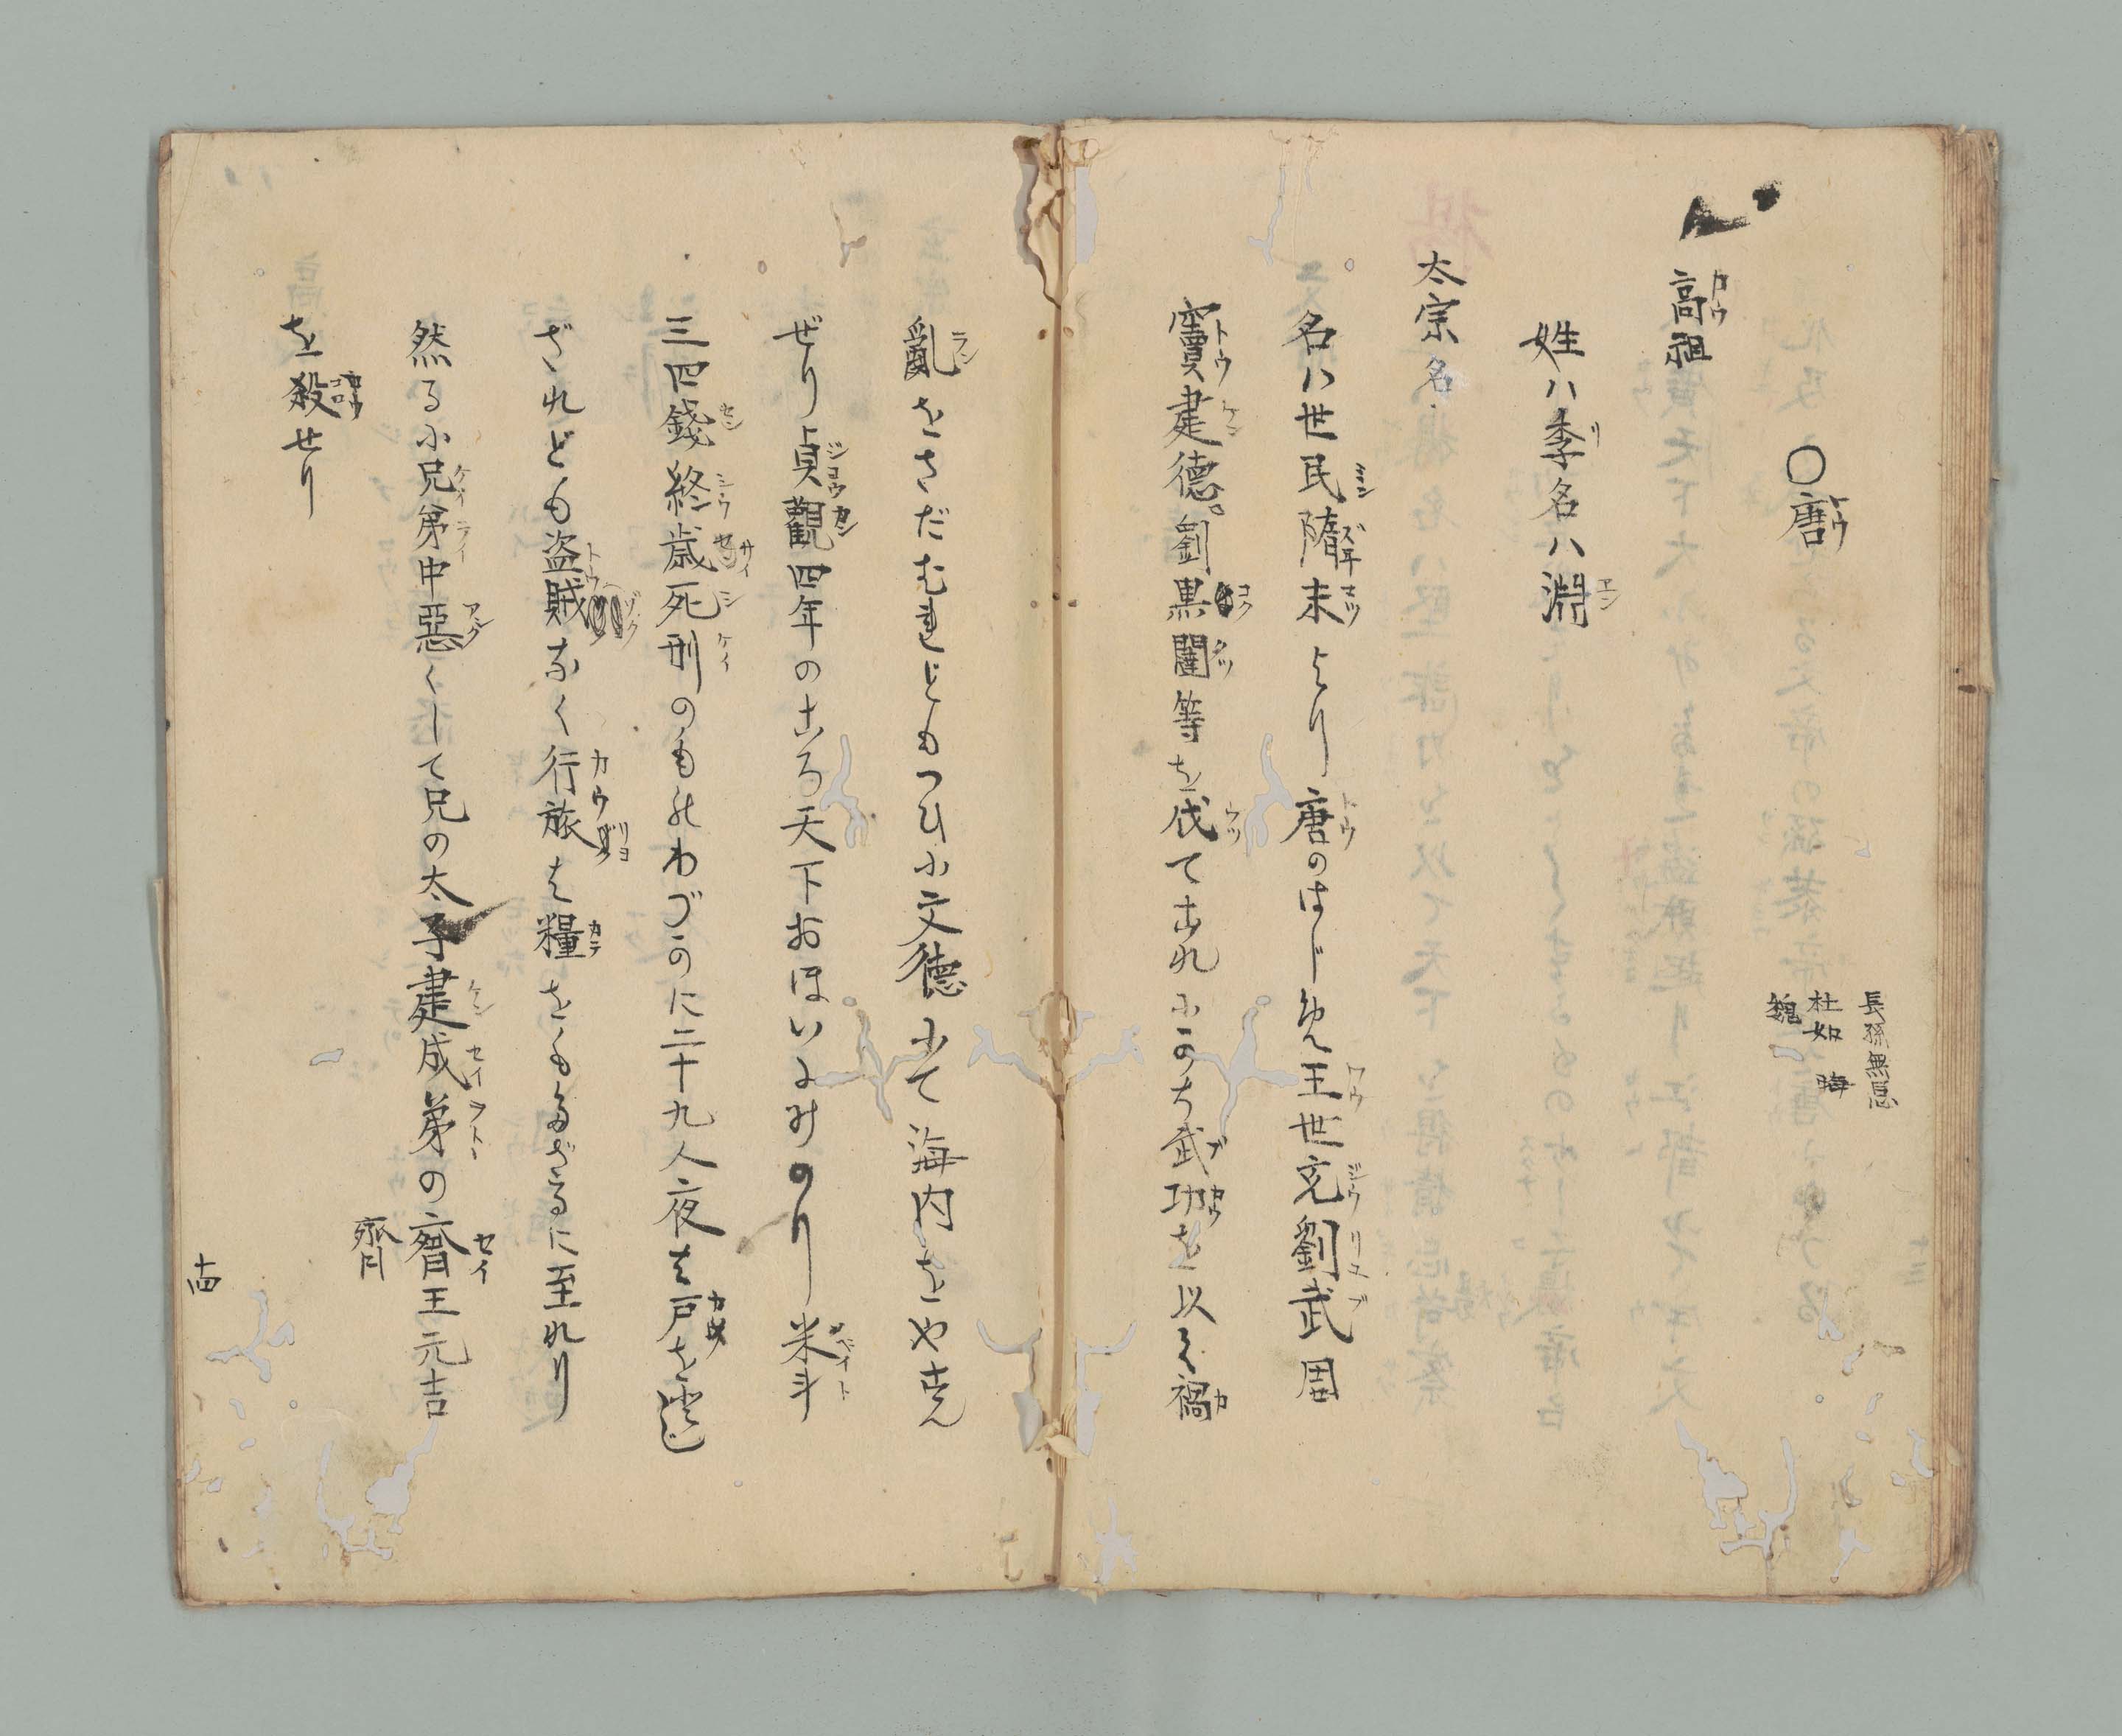 長孫無忌
杜如晦
魏
〇唐
高祖
姓ハ李名ハ淵
太宗名
名ハ世民隋末より唐のはじめ王世充劉武周
竇建德劉黒闥等を伐てこれにかち武功を以て禍
亂をさだむれどもつひに文德にて海内をやすん
ぜり貞觀四年のころ天下おほいにみのり米斗
三四錢終歳死刑のものわづかに二十九人夜は戸を
ざれども盗賊なく行旅は糧をもたざるに至れり
然るに兄弟中惡くして兄の太子建成弟の齊王元吉
齊
を殺せり
十四